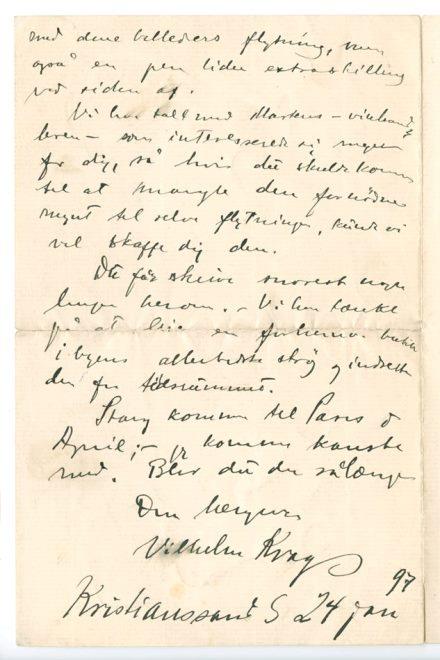 med dine billeders flytning, men
også en pen liden extraskilling
ved siden af.
Vi har talt med Martens – vinhand-
leren – som interesserede sig meget
for dig, så hvis det skulde komme
til at mangle den fornødne
mynt til selve flytningen, kunde vi
vel skaffe dig den.
Du får skrive snarest
herom. – Vi har tænkt
på at leie en butik
i byens allerbedste strøg og indrette
den for
Stang kommer til Paris
April; – jeg kommer kanske
med. Blir du der sålænge
Din hengivne
Vilhelm Krag
Kristianssand S 24 jan 97